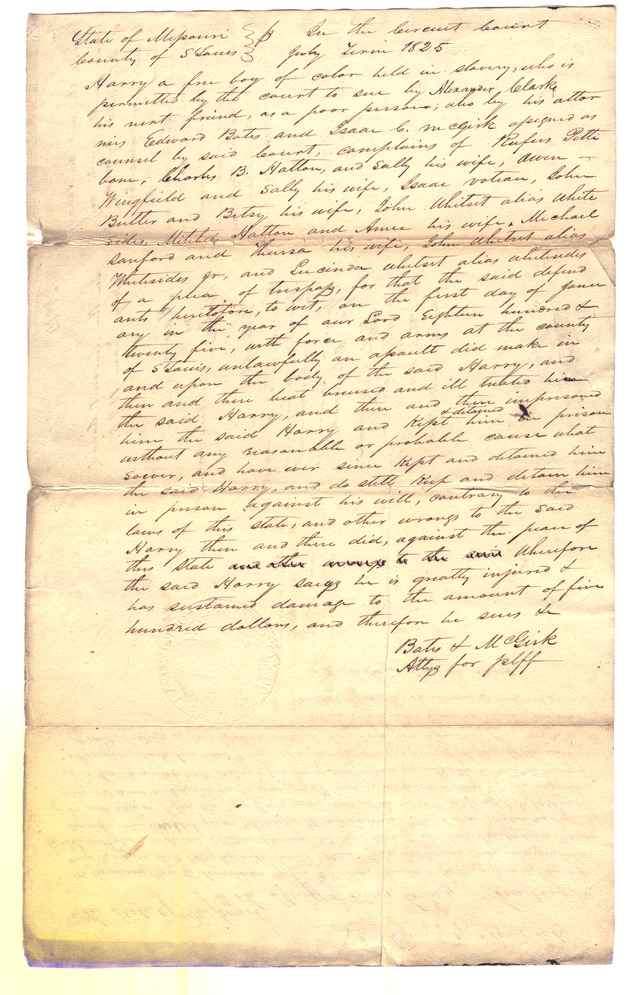 State of Missouri } ss In the Circuit Court
County of S Louis } July Term 1825
Harry a free boy of color held in slavery, who is
permitted by the court to sue by Alexander Clark
his next friend, as a poor person; also by his attor
nies Edward Bates and Isaac C. McGirk assigned as
counsel by said Court, complains of Rufus Petti
bone, Charles B. Hatton, and Sally his wife, Owen
Wingfield and Sally his wife, Isaac Votian, John
Butler and Betsy his wife, John Whitset alias White
sides, Mitilda Hatton and Annie his wife, Michael
Sanford and Thursa his wife, John Whitset alias
Whitesides jr, and Lucinda Whitset alias Whitesides
of a plea of trespass, for that the said defend
ants heretofore, to wit, on the first day of janu
ary in the year of our Lord Eighteen hundred &
twenty five, with force and arms at the county
of S Louis, unlawfully an assault did make in
and upon the body of the said Harry, and
then and there beat bruised and ill treated him
the said Harry, and then and there imprisoned
him the said Harry and kept & detained him in prison
without any reasonable or probable cause what
soever, and have ever since kept and detained him
the said Harry, and do still keep and detain him
in prison against his will, contrary to the
laws of this state, and other wrongs to the said
Harry then and there did, against the peace of
this state and other wrongs to the said Wherefore
the said Harry says he is greatly injured &
has sustained damage to the amount of five
hundred dollars, and therefore he sues &c
Bates & McGirk
Attys for plff